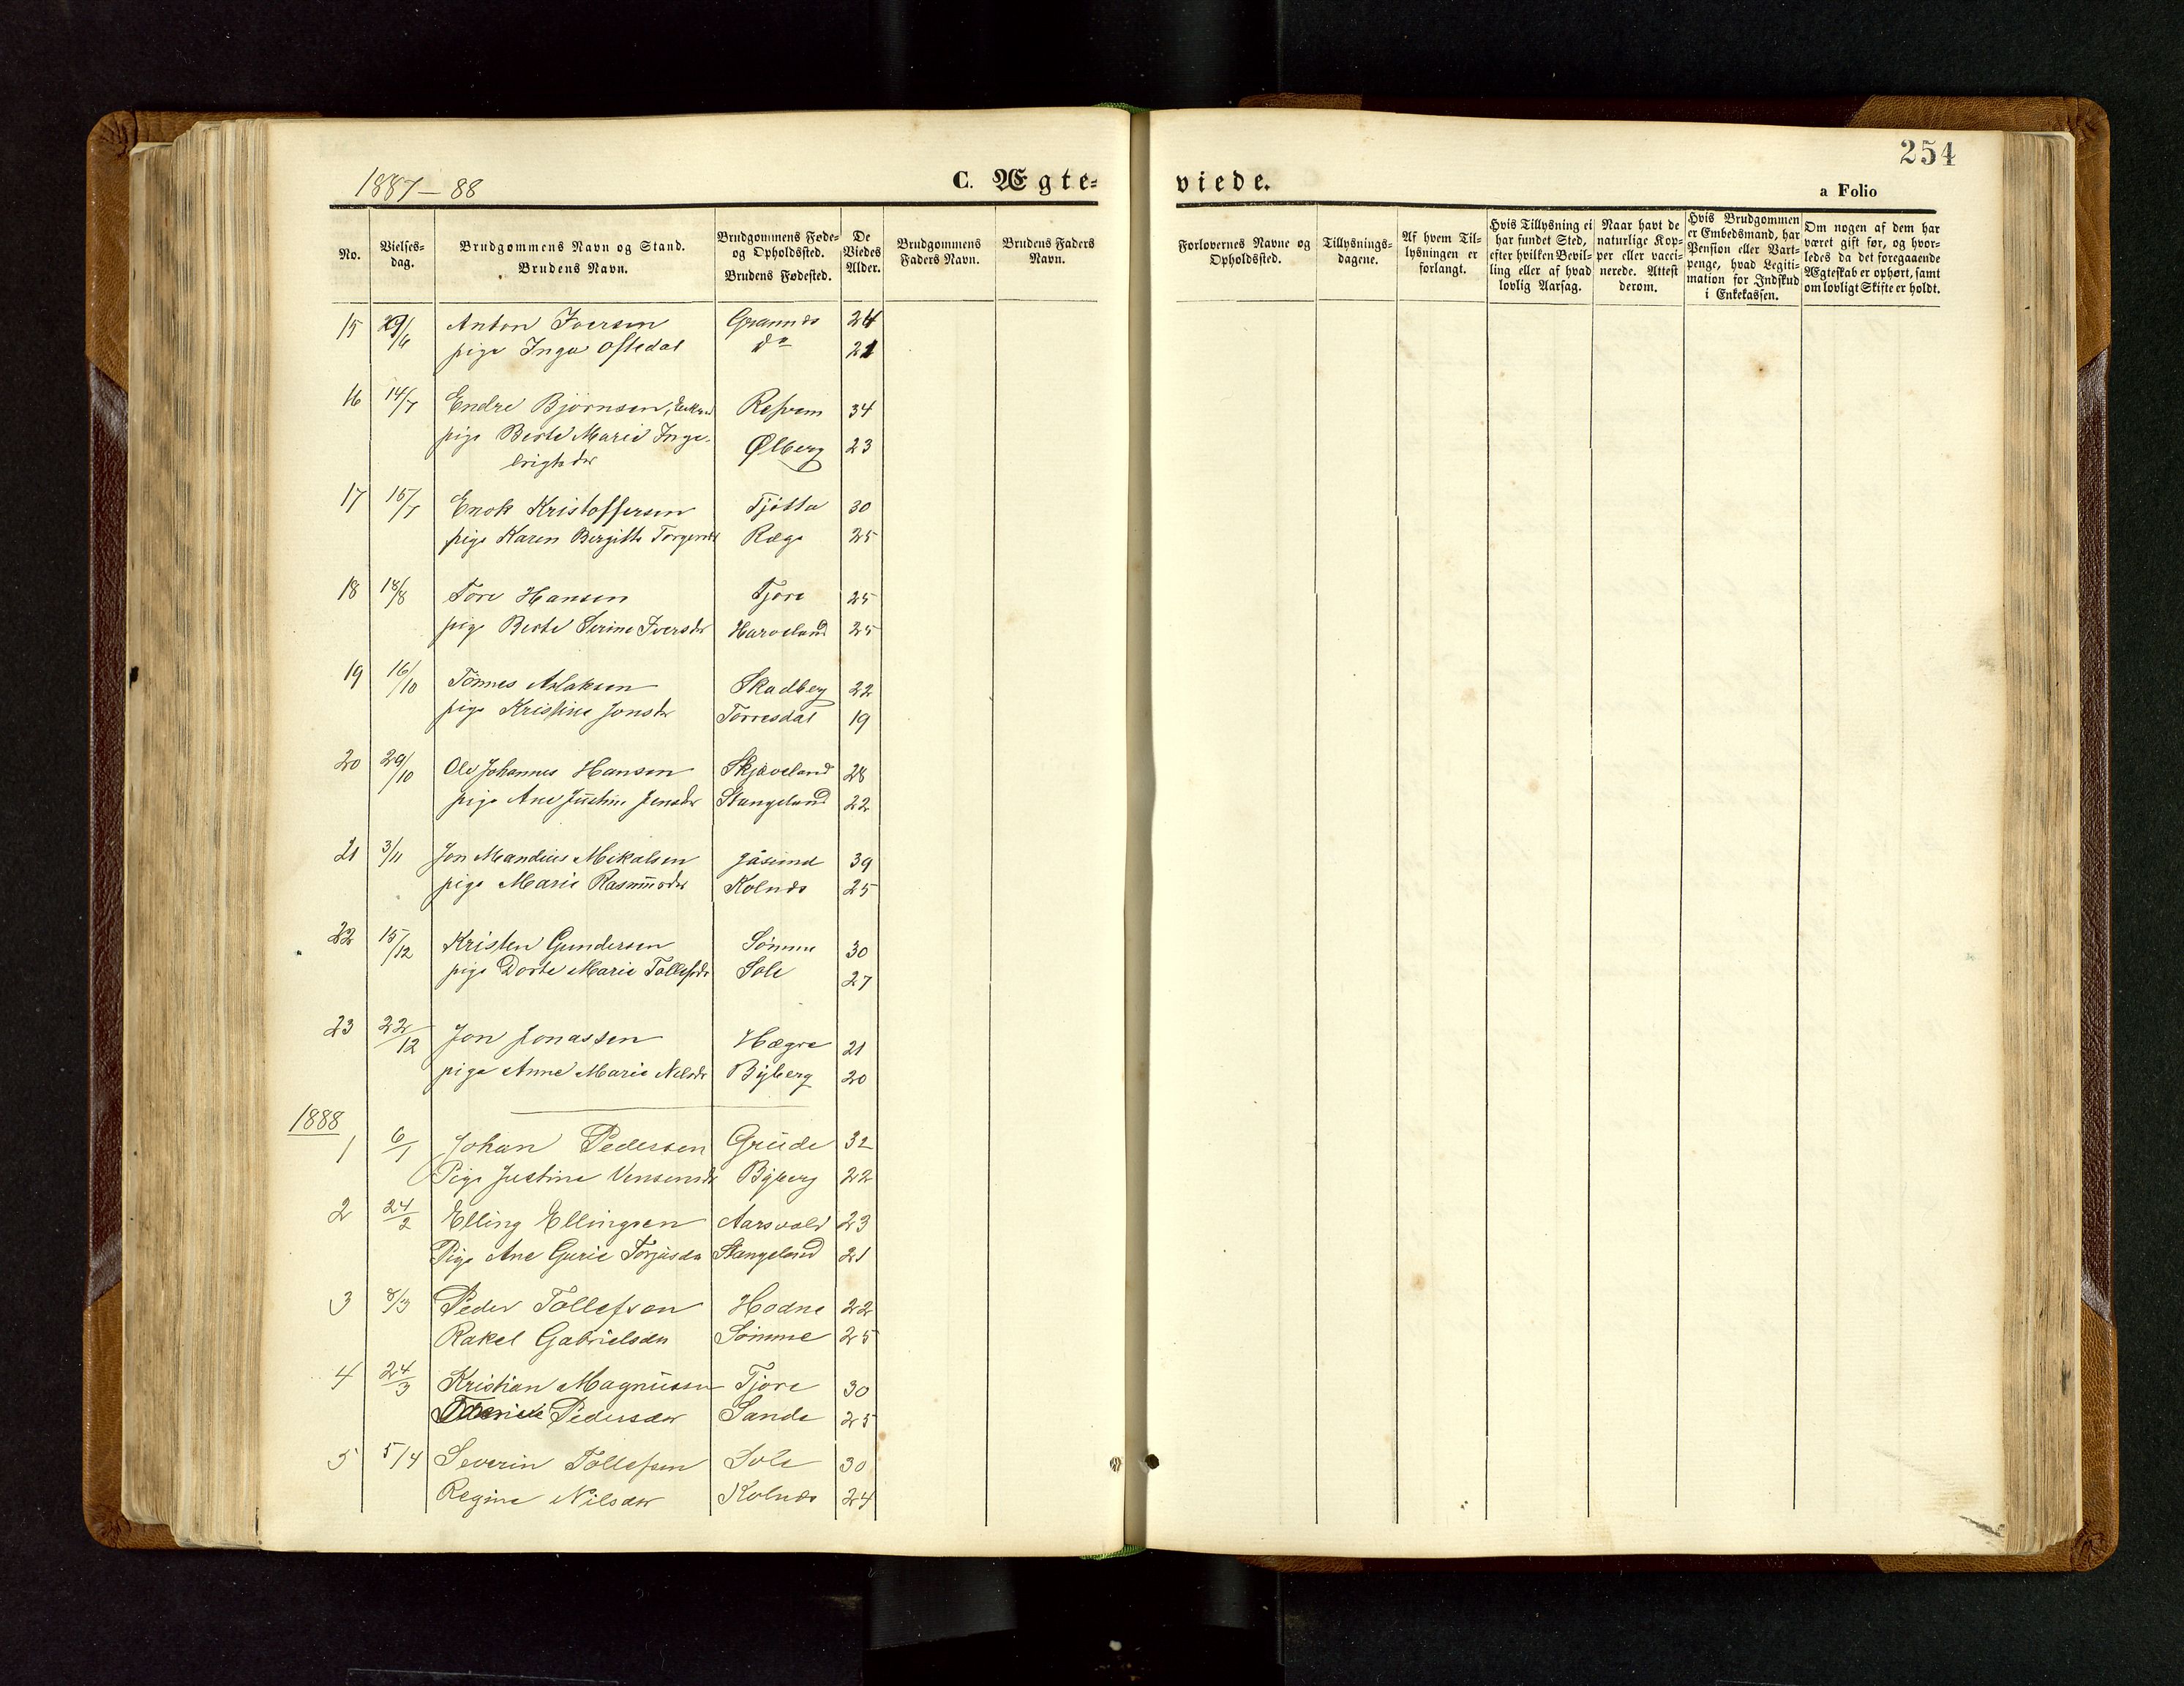 254
1887-88
C. Ægte-
viede.
a Folio
No.
Vielses-
dag.
Brudgommens Navn og Stand.
Brudens Navn.
Brudgommens Føde-
og Opholdssted.
Brudens Fødested.
De
Viedes
Alder.
Brudgommens
Faders Navn.
Brudens Faders
Navn.
Forlovernes Navne og
Opholdssted.
Tillysnings-
dagene.
Af hvem Til-
lysningen er
forlangt.
Hvis Tillysning ei
har fundet Sted,
efter hvilken Bevil-
ling eller af hvad
lovlig Aarsag.
Naar havt de
naturlige Kop-
per eller vacci-
nerede. Attest
derom.
Hvis Brudgommen
er Embedsmand, har
Pension eller Vart-
penge, hvad Legiti-
mation for Indskud
i Enkekassen.
Om nogen af dem har
været gift før, og hvor-
ledes da det foregaaende
Ægteskab er ophørt, samt
om lovligt Skifte er holdt.
15 29/6 Anton Iversen Grannes 24
pige Inga Oftedal do 21
16 14/7 Endre Bjørnsen, Refsem 34
pige Berte Marie Inge- Ølberg 23
brigtsdr
17 15/7 Enok Kristoffersen Tjøtta 30
pige Karen Birgitte Torgersdr Ræge 25
18 18/8 Tore Hansen Tjore 25
pige Berte Serine Iversdr Harveland 25
19 16/10 Tönnes Aslaksen Skadberg 22
pige Kristine Jonsdr Torresdal 19
20 29/10 Ole Johannes Hansen Skjæveland 28
pige Ane Justine Jensdr Stangeland 22
21 3/11 Jon Mandius Mikalsen Jåsund 39
pige Marie Rasmusdr Kolnes 25
22 15/12 Kristen Gundersen Sömme 30
pige Dorte Marie Tollefsdr Sole 27
23 22/12 Jon Jonassen Hægre 21
pige Anne Marie Nelsdr Byberg 20
1888
1 6/1 Johan Pedersen Grude 32
Pige Justine Vensensdr Byberg 22
2 24/2 Elling Ellingsen Aarsvold 23
Pige Ane Gurie Torjusdr Stangeland 21
3 8/3 Peder Tollefsen Hodne 22
Rakel Gabrielsdr Sömme 25
4 24/3 Kristian Magnussen Tjore 30
Pedersdr Sande 25
5 5/4 Severin Tollefsen Sole 30
Regine Nilsdr Kolnes 24